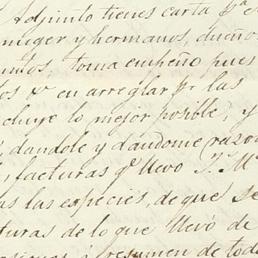 Adjunto tienes carta pª e
muger y hermanos, dueño
untos, toma empeño pues
tos xª en arreglar pr las
cluye lo mejor posible, y
, dandole y dándome razo
, facturas qe llevo J. Mª
as las especies, de que se
turas de lo que llevó de
resumen de tod